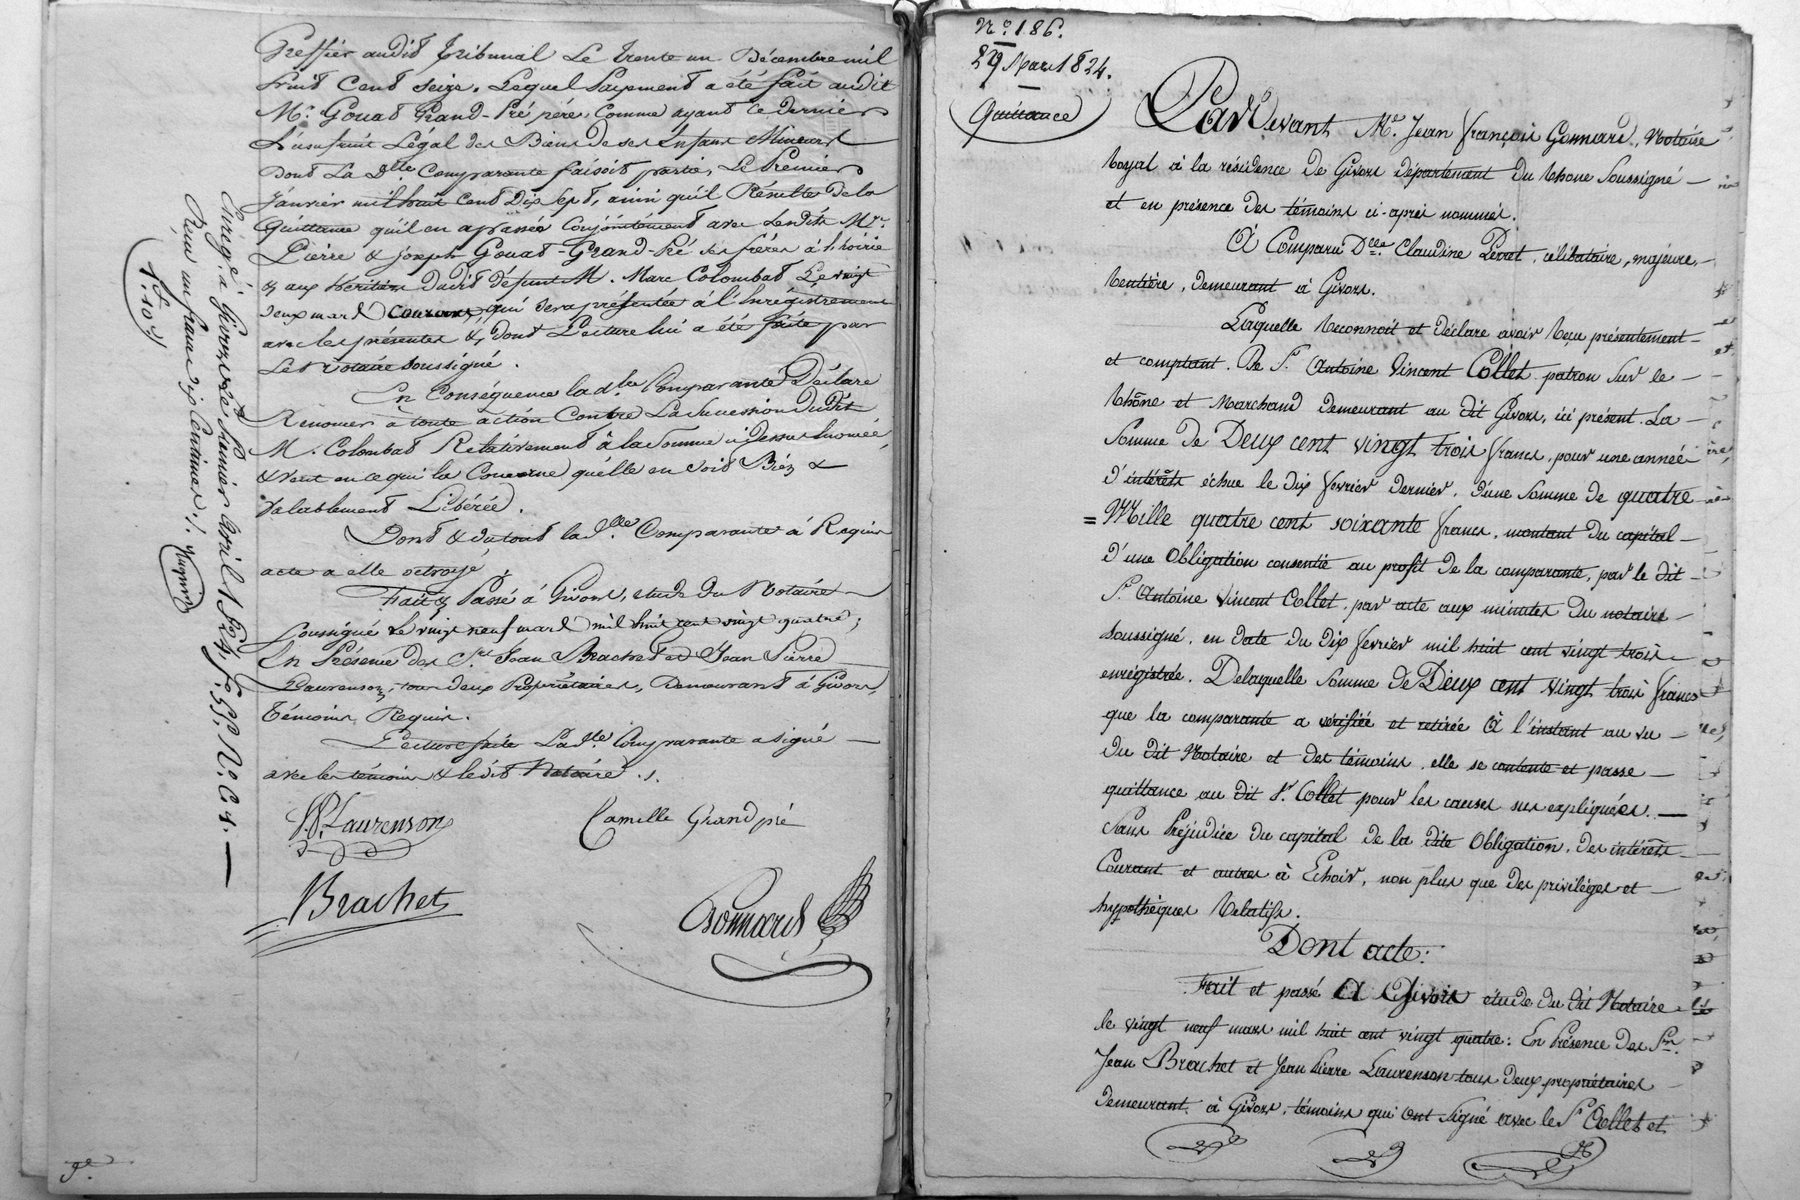 Greffier audit tribunal Le trente un Décembre mil
huit Cent Seize. Lequel Payement a été fait audit
Mr. Gouat Grand-Pré père, Comme ayant ce dernier
L'usufruit Légal des Biens de ses Enfans Mineurs
dont La Dlle Comparante faisoit partie, Le Premier
Janvier mil huit Cent Dix Sept, ainsi qu'il Résulte de la
Quittance qu'il en a passée Conjointement avec Lesdits Mrs.
Pierre & Joseph Gouat-Grand-Pré ses frères à l'hoirie
& aux héritiers dudit défunt M. Marc Colombat Le vingt
deux mars Courant, qui sera présentée à l'Enrégistrement
avec les présentes &, dont Lecture lui a été faite par
Le Notaire soussigné.
En Conséquence la dlle Comparante Déclare
Renoncer à toute action Contre La Succession dudit
M. Colombat Relativement à la Somme ci dessus énoncée,
& veut en ce qui la Concerne qu'elle en soit Bien &
Valablement Libérée.
Dont & du tout la dlle. Comparante a Requis
acte a elle octroyé.
Fait & Passé à Givors, étude du Notaire
Soussigné Le vingt neuf mars mil huit cent vingt quatre;
En Présence des Srs Jean Brachet et Jean Pierre
Laurenson, tous deux Propriétaires, Demeurant à Givors,
témoins Requis.
Lecture faite La dlle. Comparante a signé
avec les témoins & ledit Notaire ./.
J.P. Laurenson
Camille Grandpré
Brachet
Gonnard
Enrégé. à Givors le Premier Avril 1824, fo. 55, Vo. C. 4.
Reçu un franc dix Centimes ./.
1f. 10c/
Nº. 186.
29 Mars 1824.
Quittance
Pardevant Me. Jean François Gonnard, Notaire
Royal à la résidence de Givors département du Rhone Soussigné
et en présence des témoins ci-après nommés.
A Comparu Dlle. Claudine Perret, célibataire, majeure,
Rentière, demeurant à Givors.
Laquelle Reconnoit et déclare avoir Reçu présentement
et comptant. De Sr. Antoine Vincent Collet patron sur le
Rhône et Marchand demeurant au dit Givors, ici présent. La
Somme de Deux cent vingt trois francs, pour une année
d'intérêts échue le dix fevrier dernier, d'une Somme de quatre
= Mille quatre cent soixante francs, montant du capital
d'une Obligation consentie au profit de la comparante, par le dit
Sr. Antoine Vincent Collet, par acte aux minutes du notaire
soussigné, en date du dix fevrier mil huit cent vingt trois
enrégistrée. Delaquelle Somme de Deux cent vingt trois francs
que la comparante a vérifiée et retirée à l'instant au vu
du dit Notaire et des témoins, elle se contente et passe
quittance au dit Sr. Collet pour les causes sus expliquées.
Sans Préjudice du capital de la dite Obligation, des intérêts
Courant et autres à Echoir, non plus que des priviléges et
hypothèques Relatifs.
Dont acte:
Fait et passé A Givors étude du dit Notaire
le vingt neuf mars mil huit cent vingt quatre: En Présence des Srs.
Jean Brachet et Jean Pierre Laurenson tous deux propriétaires
demeurant à Givors, témoins qui ont Signé avec le Sr Collet et